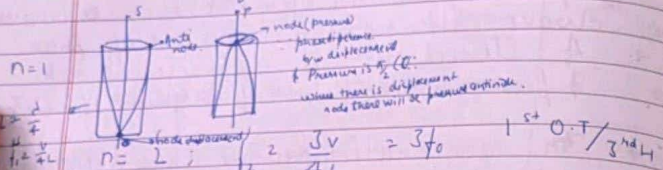 S
P
Anti node
node (pressure)
phase difference
b/w displacement
& Pressure is π/2
where there is displacement
node there will be pressure antinode.
n=1
λ/4
v/4L
node displacement
n= 2 ; = 3v = 3f₀ 1st O.T/3rd H